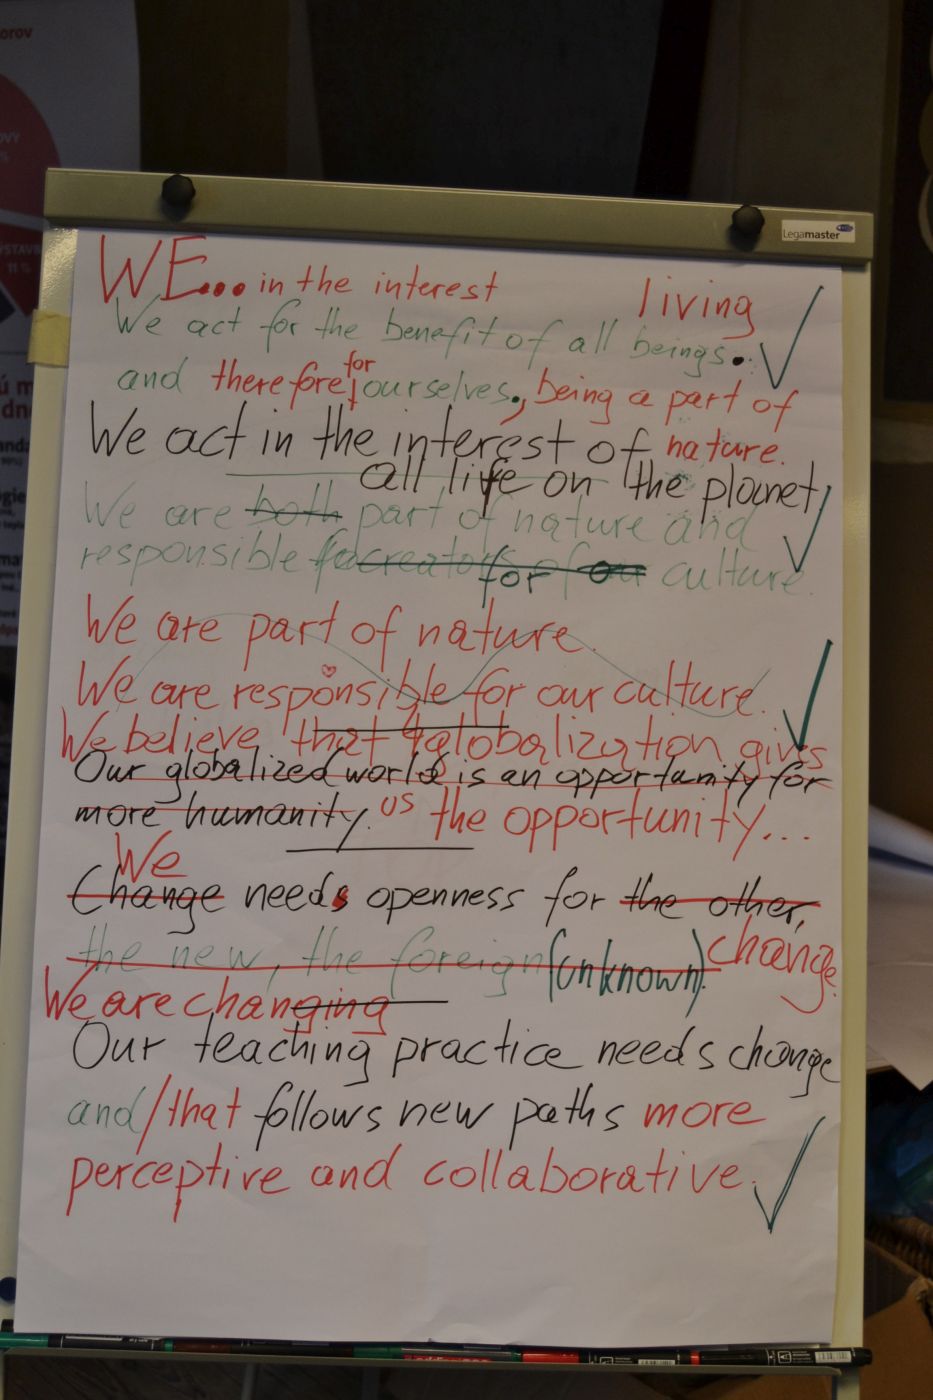 orov
Legamaster
WE... in the interest living
We act for the benefit of all beings.
and therefore for ourselves, being a part of
We act in the interest of nature.
all life on the planet,
We are both part of nature and
responsible creators of our culture.
for
We are part of nature.
We are responsible for our culture.
We believe that globalization gives
Our globalized world is an opportunity for
more humanity. us the opportunity...
We
Change needs openness for the other,
the new, the foreign (unknown). change.
We are changing
Our teaching practice needs change
and/that follows new paths more
perceptive and collaborative.